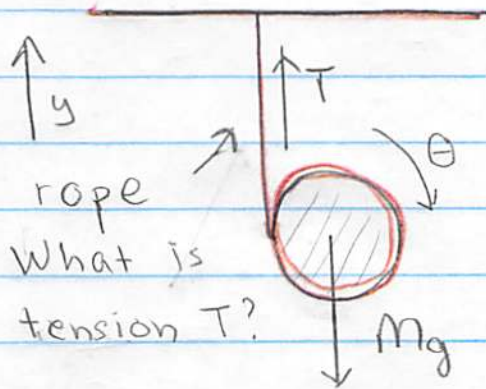 y
T
θ
rope
What is
tension T?
Mg